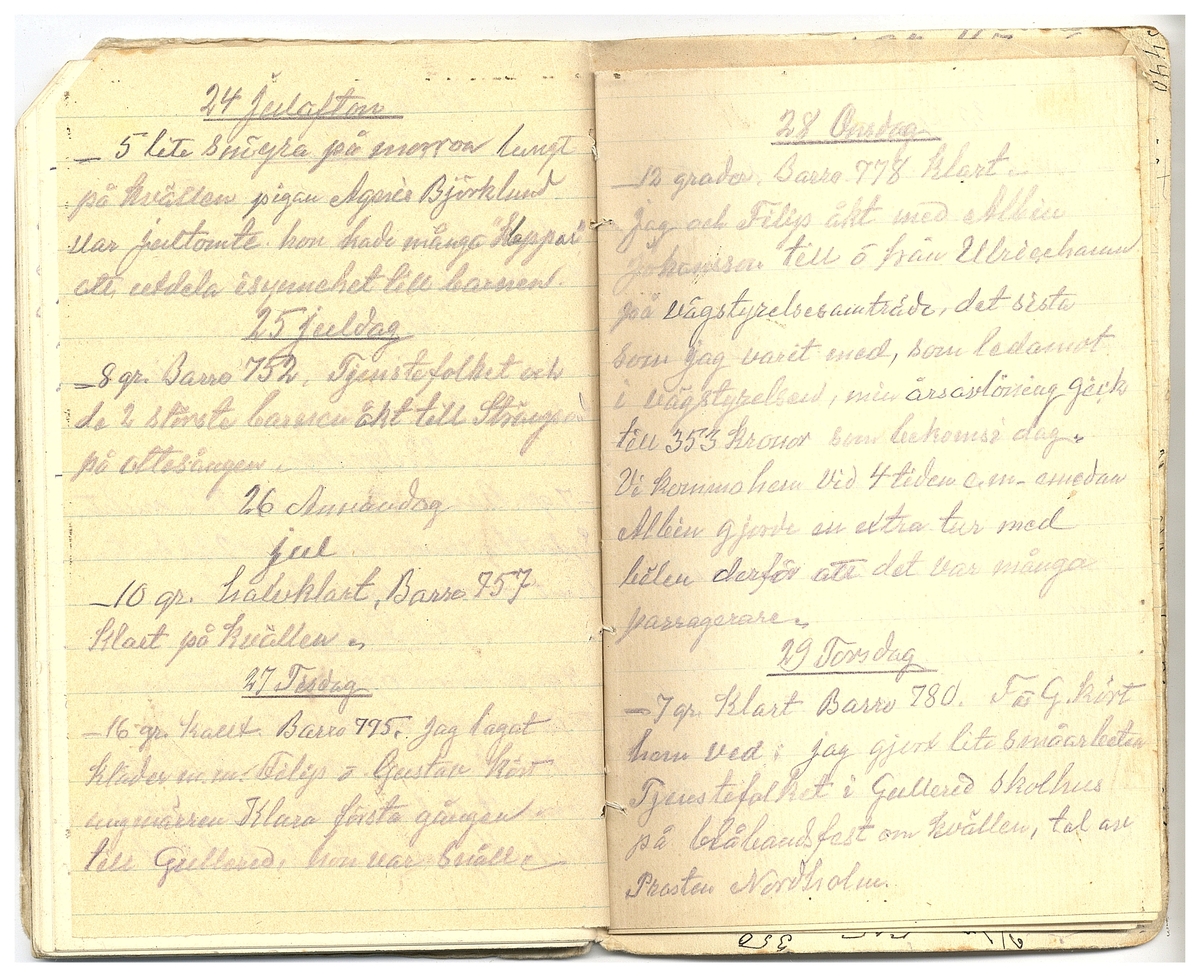 24 Julafton
– 5 lite snöyra på morron lungt
på kvällen pigan Agnes Björklund
var jultomte hon hade många "Klappar"
att utdela isynnehet till barnen.
25 juldag
–8 gr. Barro 752. Tjenstefolket och
de 2 största barnen åkt till
på ottesången.
26 Annandag
jul
–10 gr. halvklart, Barro 757
Klart på kvällen
27 Tisdag
–16 gr. kallt. Barro 775. jag lagat
kläder m.m. Filip o Gustav kört
ungmärren Klara första gången
till Gullered, hon var snäll
28 Onsdag
–12 grader. Barro 778 Klart
Jag och Filip åkt med Albin
Johansson till o från Ulricehamn
på vägstyrelsesamträde, det sista
som jag varit med, som ledamot
i vägstyrelsen, min årsavlöning gick
till 353 kronor som bekoms i dag.
Vi kommo hem vid 4 tiden e.m. emedan
Albin gjorde en extra tur med
bilen derför att det var många
passagerare
29 Torsdag
–7 gr. Klart Barro 780. F o G. kört
hem ved, jag gjort lite småarbeten
Tjenstefolket i Gullered skolhus
på blåbandsfest om kvällen, tal av
Prosten Nordholm.
350